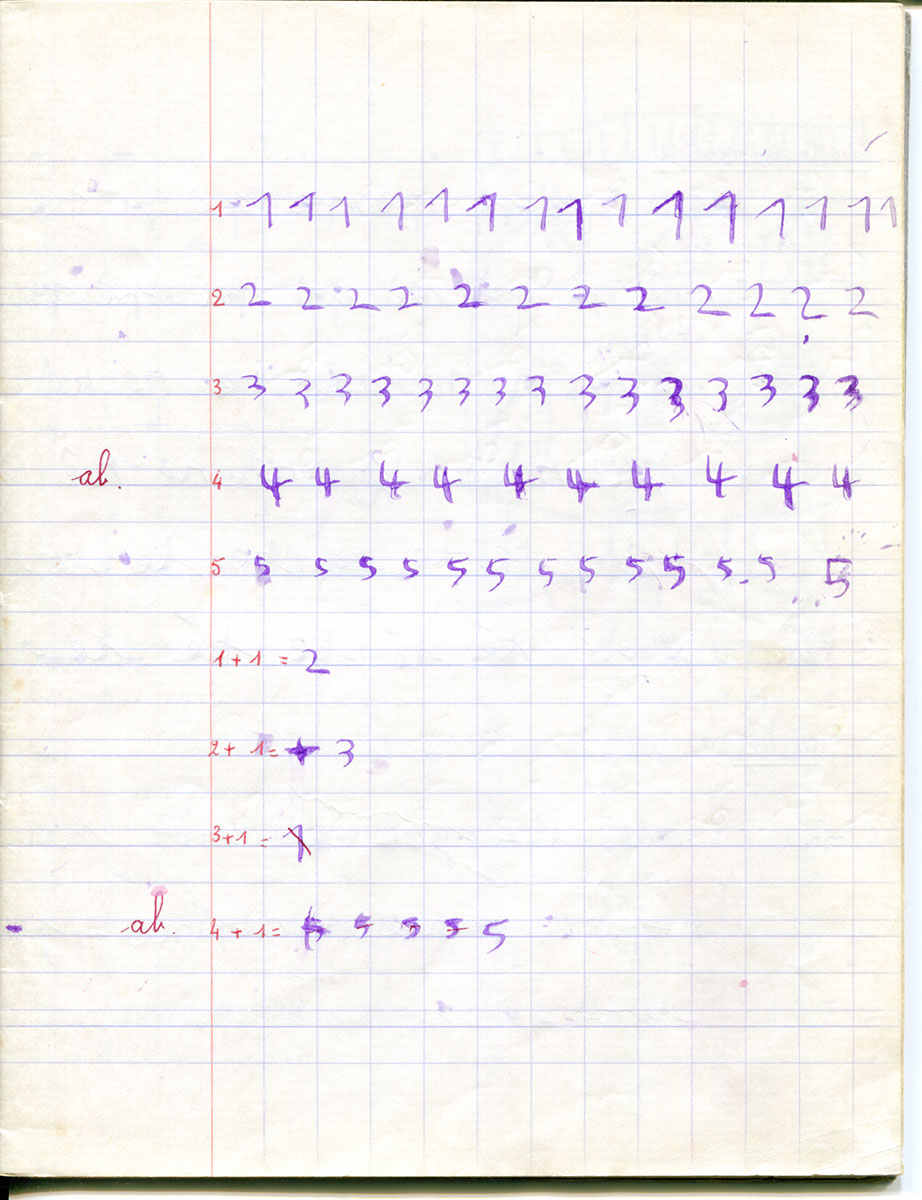 1 1 1 1 1 1 1 1 1 1 1 1 1 1 1 1
2 2 2 2 2 2 2 2 2 2 2 2 2
3 3 3 3 3 3 3 3 3 3 3 3 3 3 3 3
ab. 4 4 4 4 4 4 4 4 4 4 4
5 5 5 5 5 5 5 5 5 5 5 5 5 5
1 + 1 = 2
2 + 1 = 3
3 + 1 = 1
ab. 4 + 1 = 5 5 5 5 5